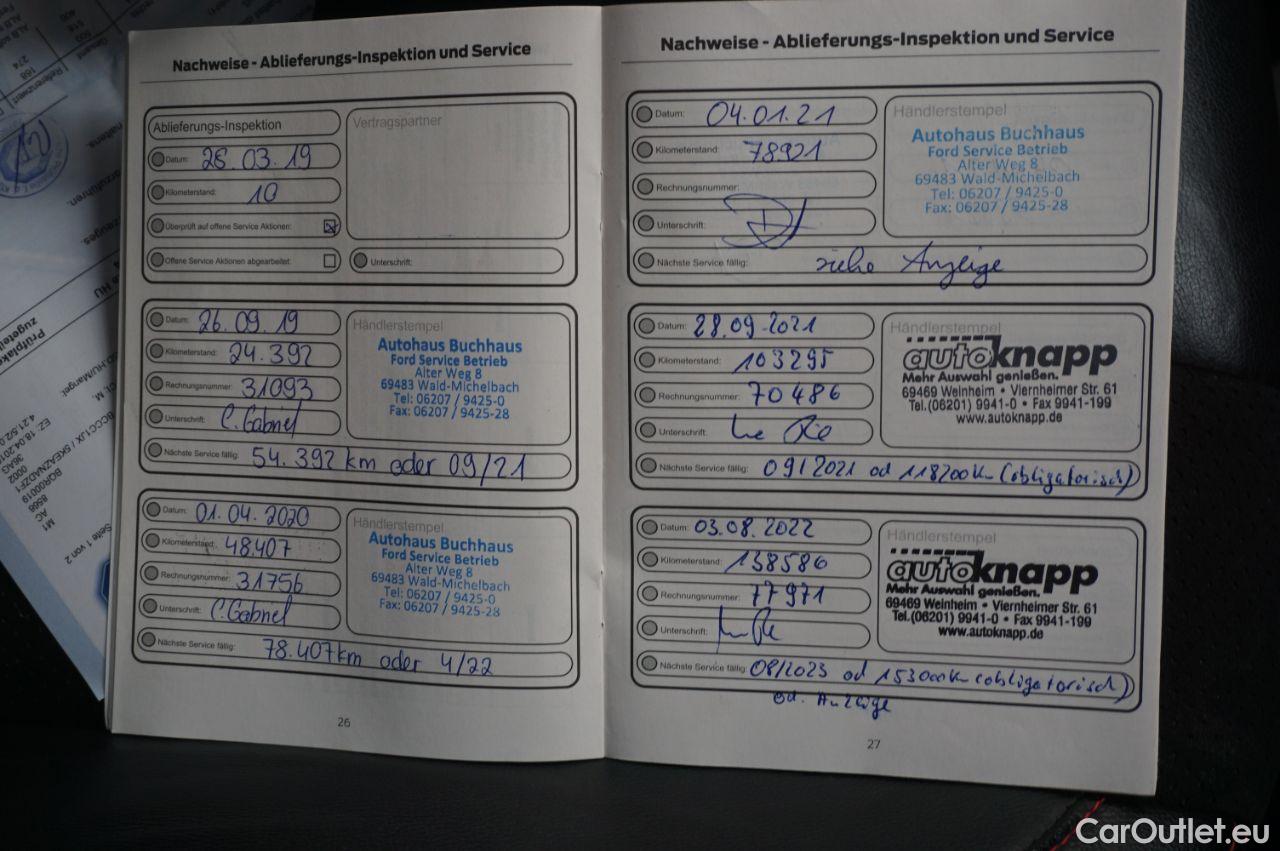 Nachweise - Ablieferungs-Inspektion und Service
Ablieferungs-Inspektion
Datum: 28.03.19
Kilometerstand: 10
Überprüft auf offene Service Aktionen:
Offene Service Aktionen abgearbeitet:
Vertragspartner
Unterschrift:
Datum: 26.09.19
Kilometerstand: 24.392
Rechnungsnummer: 31093
Unterschrift: C. Gabriel
Nächste Service fällig: 54.392 km oder 09/21
Händlerstempel
Autohaus Buchhaus
Ford Service Betrieb
Alter Weg 8
69483 Wald-Michelbach
Tel: 06207 / 9425-0
Fax: 06207 / 9425-28
Datum: 01.04.2020
Kilometerstand: 48.407
Rechnungsnummer: 31756
Unterschrift: C. Gabriel
Nächste Service fällig: 78.407km oder 4/22
Händlerstempel
Autohaus Buchhaus
Ford Service Betrieb
Alter Weg 8
69483 Wald-Michelbach
Tel: 06207 / 9425-0
Fax: 06207 / 9425-28
26
Nachweise - Ablieferungs-Inspektion und Service
Datum: 04.01.21
Kilometerstand: 78921
Rechnungsnummer:
Unterschrift:
Nächste Service fällig: siehe Anzeige
Händlerstempel
Autohaus Buchhaus
Ford Service Betrieb
Alter Weg 8
69483 Wald-Michelbach
Tel: 06207 / 9425-0
Fax: 06207 / 9425-28
Datum: 28.09.2021
Kilometerstand: 103295
Rechnungsnummer: 70486
Unterschrift:
Nächste Service fällig: 09/2021 od 118200km (obligatorisch)
Händlerstempel
autoknapp
Mehr Auswahl genießen.
69469 Weinheim • Viernheimer Str. 61
Tel.(06201) 9941-0 • Fax 9941-199
www.autoknapp.de
Datum: 03.08.2022
Kilometerstand: 138586
Rechnungsnummer: 77971
Unterschrift:
Nächste Service fällig: 08/2023 od 153000km (obligatorisch)
od. Anzeige
Händlerstempel
autoknapp
Mehr Auswahl genießen.
69469 Weinheim • Viernheimer Str. 61
Tel.(06201) 9941-0 • Fax 9941-199
www.autoknapp.de
27
Seite 1 von 2
CarOutlet.eu